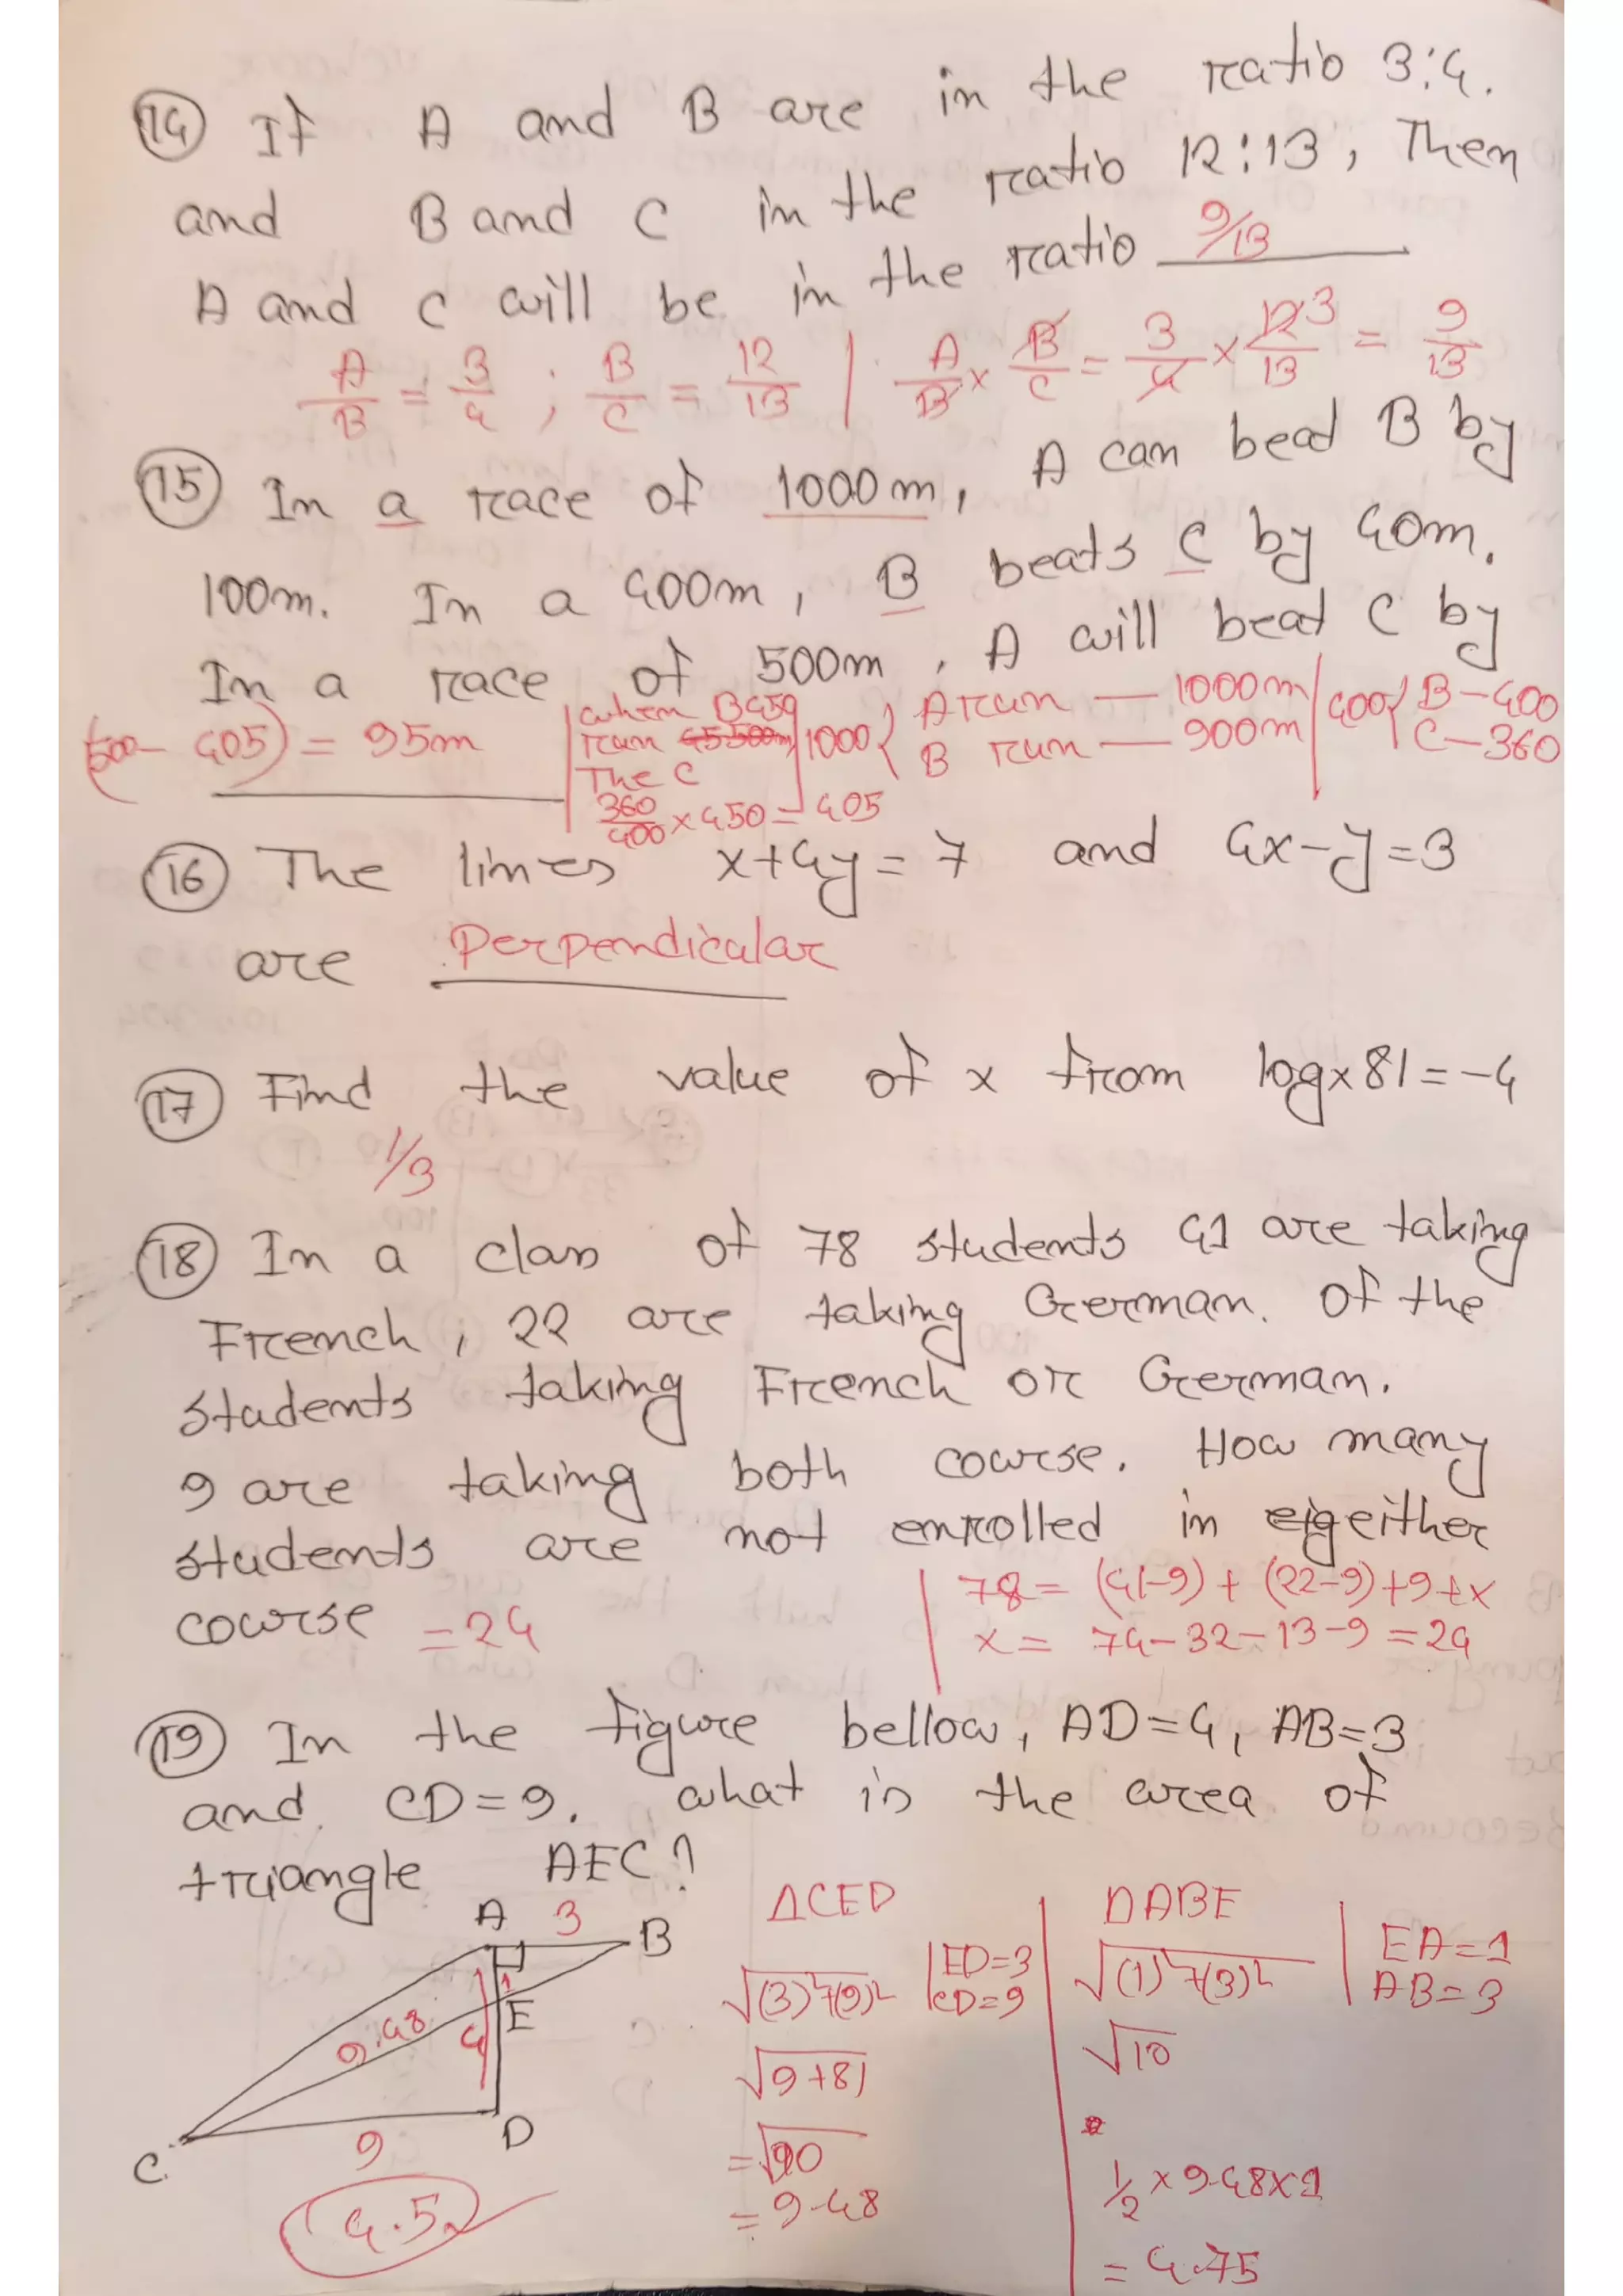 14 If A and B are in the ratio 3:4.
and B and C in the ratio 12:13, Then
A and C will be in the ratio 9/13
A/B = 3/4 ; B/C = 12/13 | A/B × B/C = 3/4 × 12/13 3 = 9/13
15 In a race of 1000m, A can beat B by
100m. In a 400m, B beats C by 40m.
In a race of 500m, A will beat C by
(500-405) = 95m
when B 450
run 45 500m
The C
360/400 × 450 = 405
1000 { A run — 1000m
B run — 900m
400 { B-400
C-360
16 The lines x+4y=7 and 4x-y=3
are perpendicular
17 Find the value of x from logx81=-4
1/3
18 In a class of 78 students 41 are taking
French, 22 are taking German. Of the
students taking French or German.
9 are taking both course. How many
students are not enrolled in eigeither
course =24
78 = (41-9) + (22-9)+9+x
x = 74-32-13-9=24
19 In the figure bellow, AD=4, AB=3
and. CD=9. what is the area of
triangle AEC?
A 3 B
1
E
9.48 4
C 9 D
4.5
ΔCED
√(3)²+(9)² | ED=3
CD=9
√9+81
=√90
=9.48
ΔABE
√(1)²+(3)² | EA=1
AB=3
√10
1/2 × 9.48×1
= 4.75